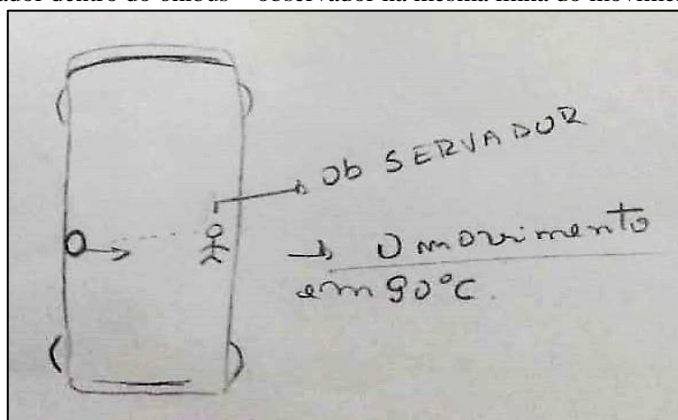 Ob SERVADOR
→ O movimento
em 90°C.